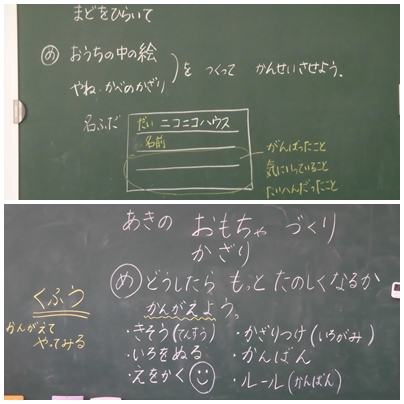 まどをひらいて
め おうちの中の絵
やね・かべのかざり
を つくって かんせいさせよう。
名ふだ
だい ニコニコハウス
名前
がんばったこと
気にいっていること
たいへんだったこと
あきの おもちゃ づくり
かざり
め どうしたら もっと たのしくなるか
かんがえよう。
くふう
かんがえて
やってみる
・きそう(てんすう)
・いろをぬる
・えをかく
・かざりつけ(いろがみ)
・かんばん
・ルール(かんばん)